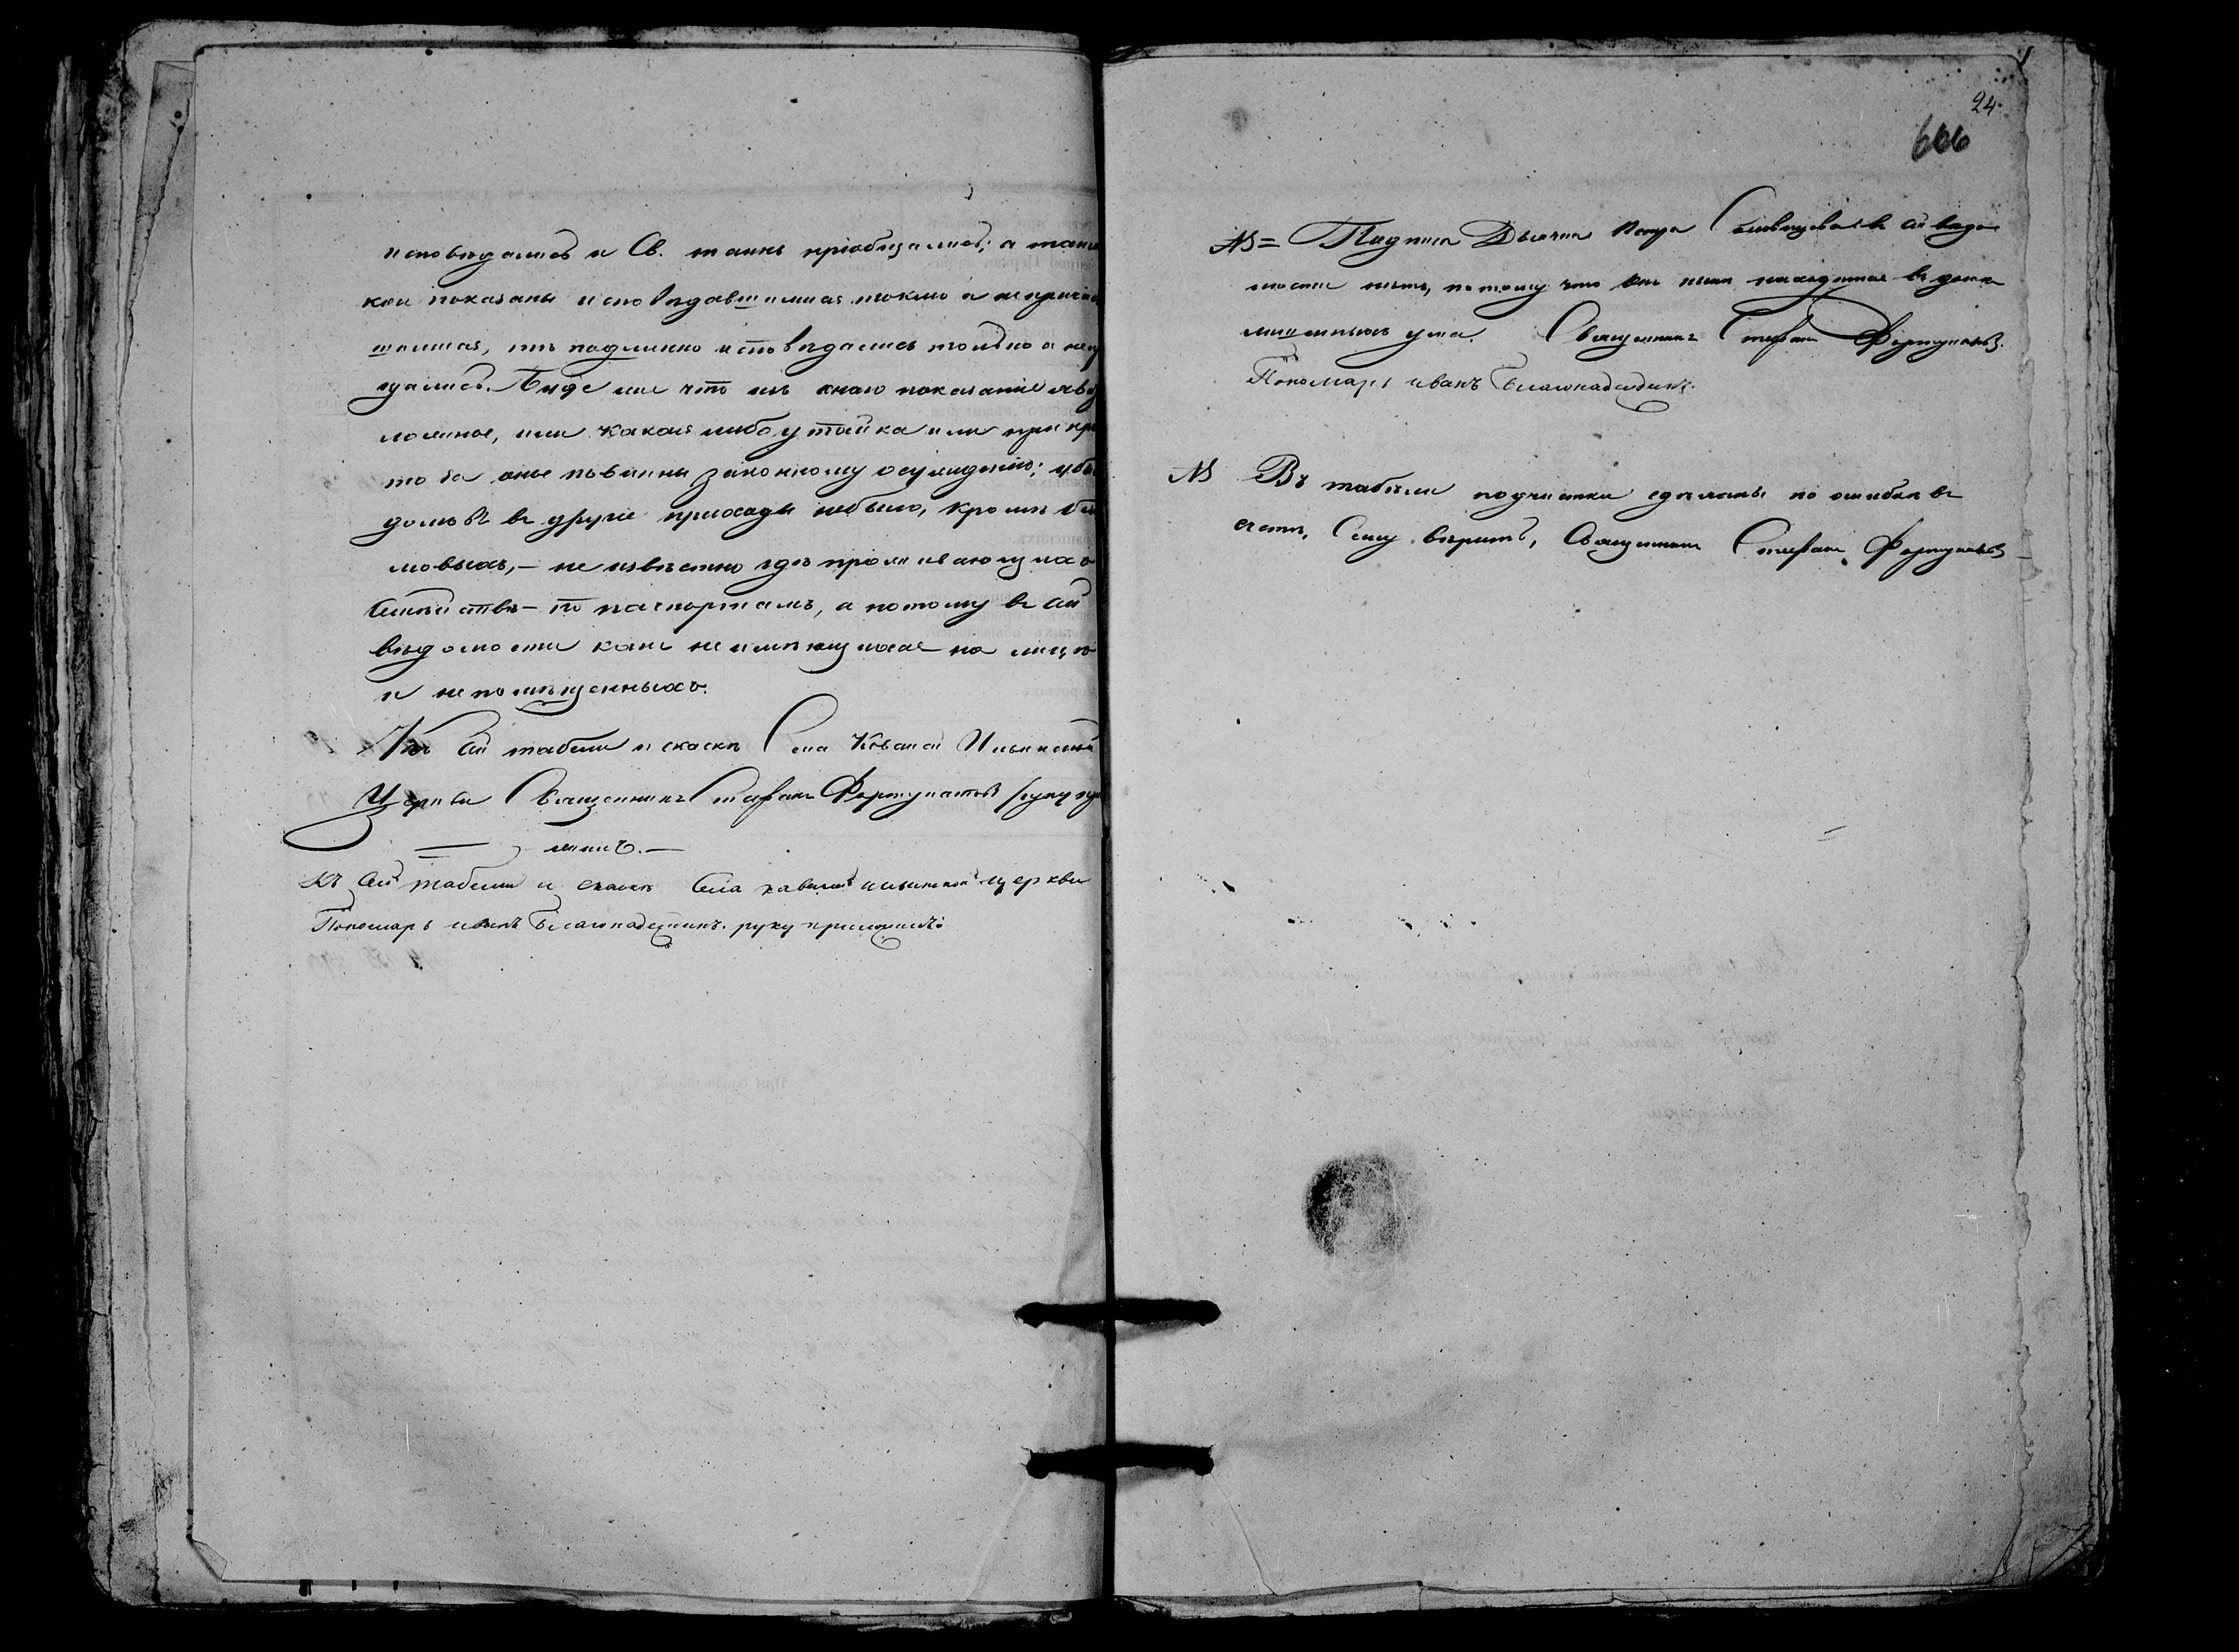 исповѣдались и Св. таинъ пріобщались; а так
кои показаны исповѣдавшимися токмо а неприча
щшимися, тѣ подлинно исповѣдались только а не
щались. Буде же что изъ онаго показанія яви
ложное, или какая либо утайка или прикр
то за оное повинны законному осужденію;
домовъ въ другіе приходы небыло, кромѣ
мовыхъ, – не извѣстно гдѣ проживающихъ
семѣйствъ – по пачпортамъ, а потому въ сей
вѣдомости какъ не имѣющихся на лицо
и не помѣщенныхъ.
Къ сей табели и скаскѣ Села Ильинской
Церкви Священникъ Стефанъ Фортунатовъ руку при
ложилъ. –
Къ сей табели и скаскѣ Села ильинской церкви
Пономарь иванъ Благонадеждинъ руку приложилъ.
24.
666
NB = Подписи Дьячка Петра въ сей вѣдо
мости нѣтъ, потому что онъ нынѣ находится въ домѣ
лишенныхъ ума. Священникъ Стефанъ Фортунатовъ.
Пономарь иванъ Благонадеждинъ.
NB Въ табели подчистки сдѣланы по ошибкѣ въ
счетѣ, Сему вѣрить, Священникъ Стефанъ Фортунатовъ